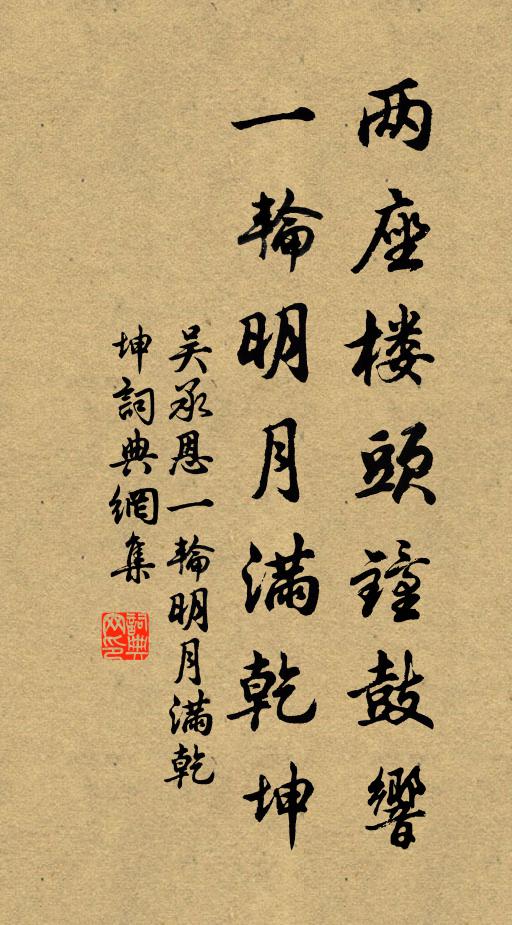 两座楼頭鐘鼓響
一輪明月滿乾坤
吴承恩一輪明月滿乾
坤詞典網集
詞典
网印